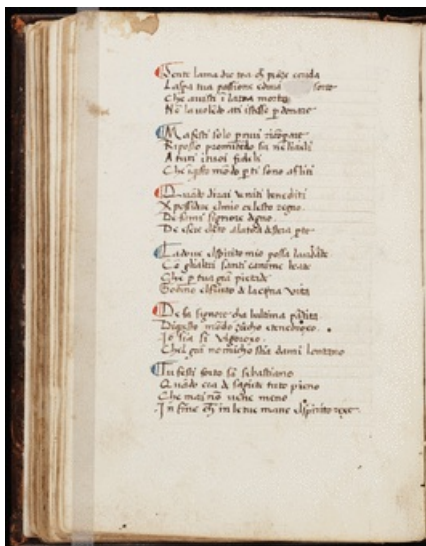 Sente lamadre tua ch piãze crida
Laspa tua passione cõ sorte
Che avisti i latoa morte
Ne la volẽdo ati istesse p donare
Ma festi solo p nui ricõpare
Riposso promitẽdo sui ne li cieli
A tuti i tuoi fideli
Che i q̃sto mõdo p ti sono afliti
Quãdo dirai veniti beneditti
X possidere elmio celeste regno
De fami signore degno
De esere eleto alatoa destra pte
La dove elspirito mio possa laudarte
Cõ gli altri santi & anime beate
Che p tua grã pietade
Godino elfruto de la eterna vita
De fa signore cha lultima partita
Di questo mõdo ziecho e tenebroso
Io sia si vigoroso
Chel grã nemicho stia dami lontano
Tu festi forte sã sebastiano
Quãdo era de sagitte tuto pieno
Che mai nõ viene meno
In fine ch in le tue mane elspirito rexe